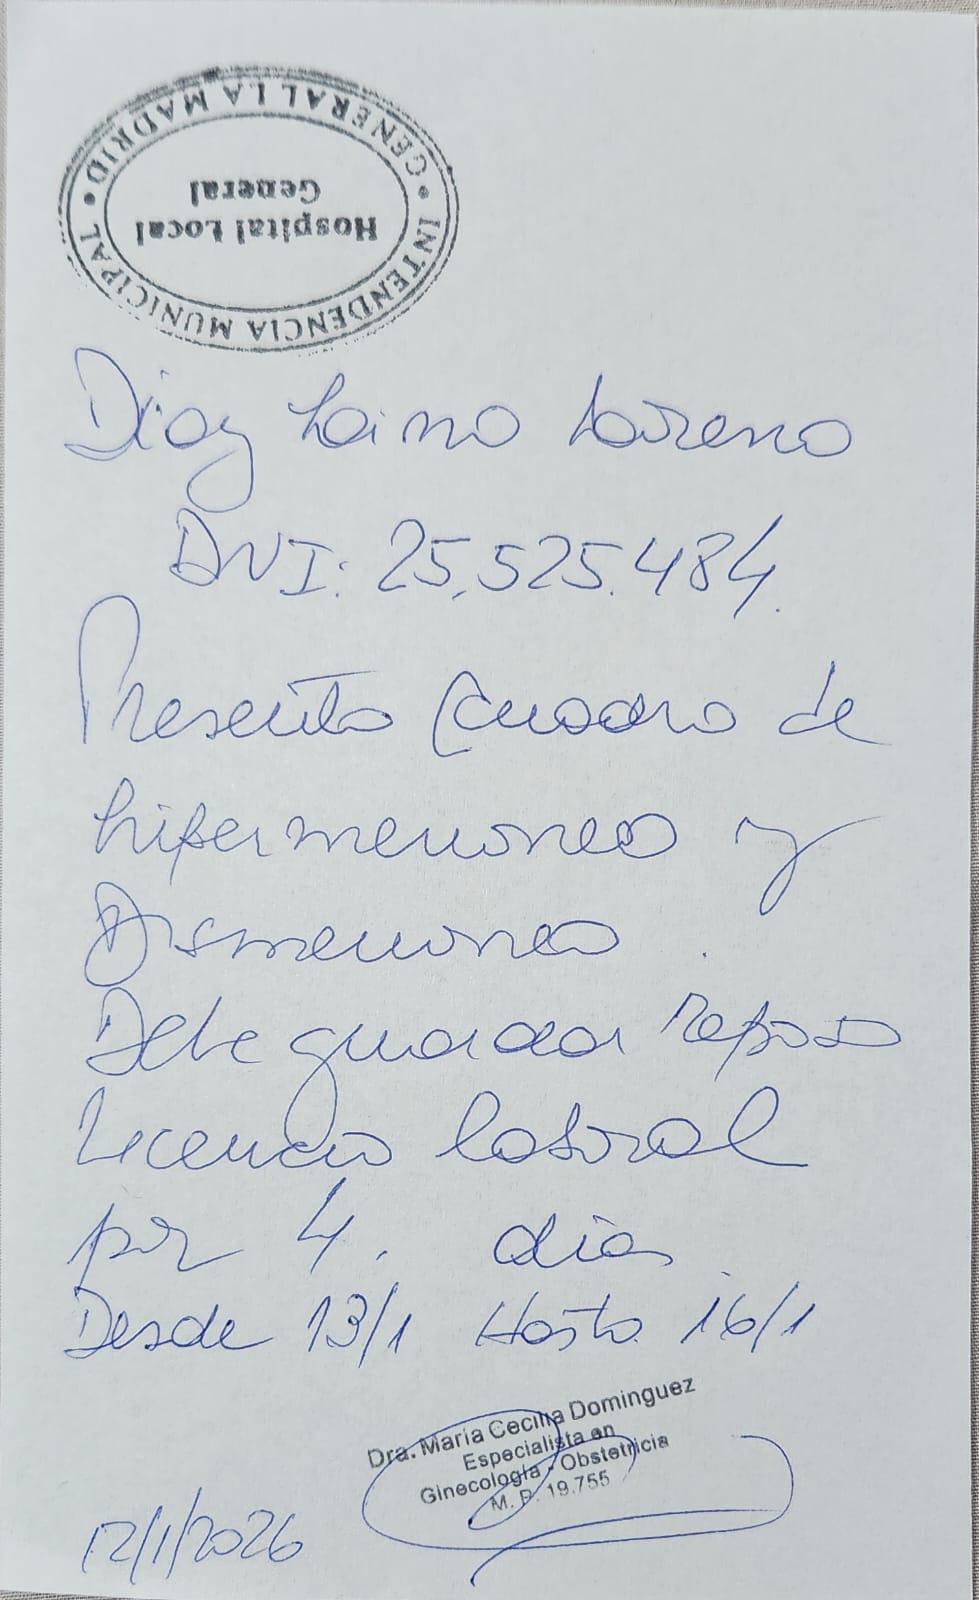 INTENDENCIA MUNICIPAL
GENERAL LA MADRID
Hospital Local
General
Diaz Laino Lorena
DNI: 25.525.484.
Presenta Cuadro de
hipermenorrea y
Dismenorrea.
Debe guardar reposo
Licencia laboral
por 4. dias.
Desde 13/1 Hasta 16/1
Dra. Maria Cecilia Dominguez
Especialista en
Ginecologia - Obstetricia
M. P. 19.755
12/1/2026